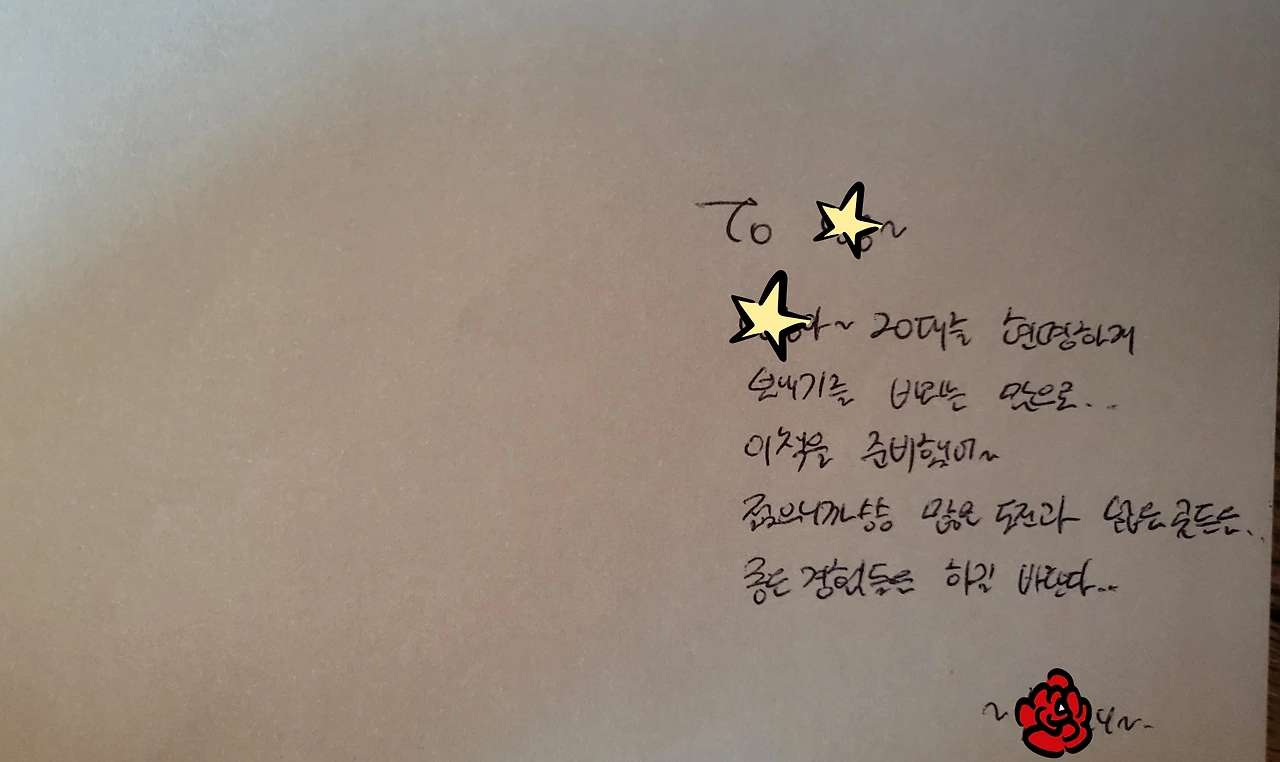 To ~
아~ 20대를 현명하게
보내기를 바라는 맘으로...
이책을 준비했어~
젊으니까 많은 도전과
좋은 경험들을 하길 바란다...